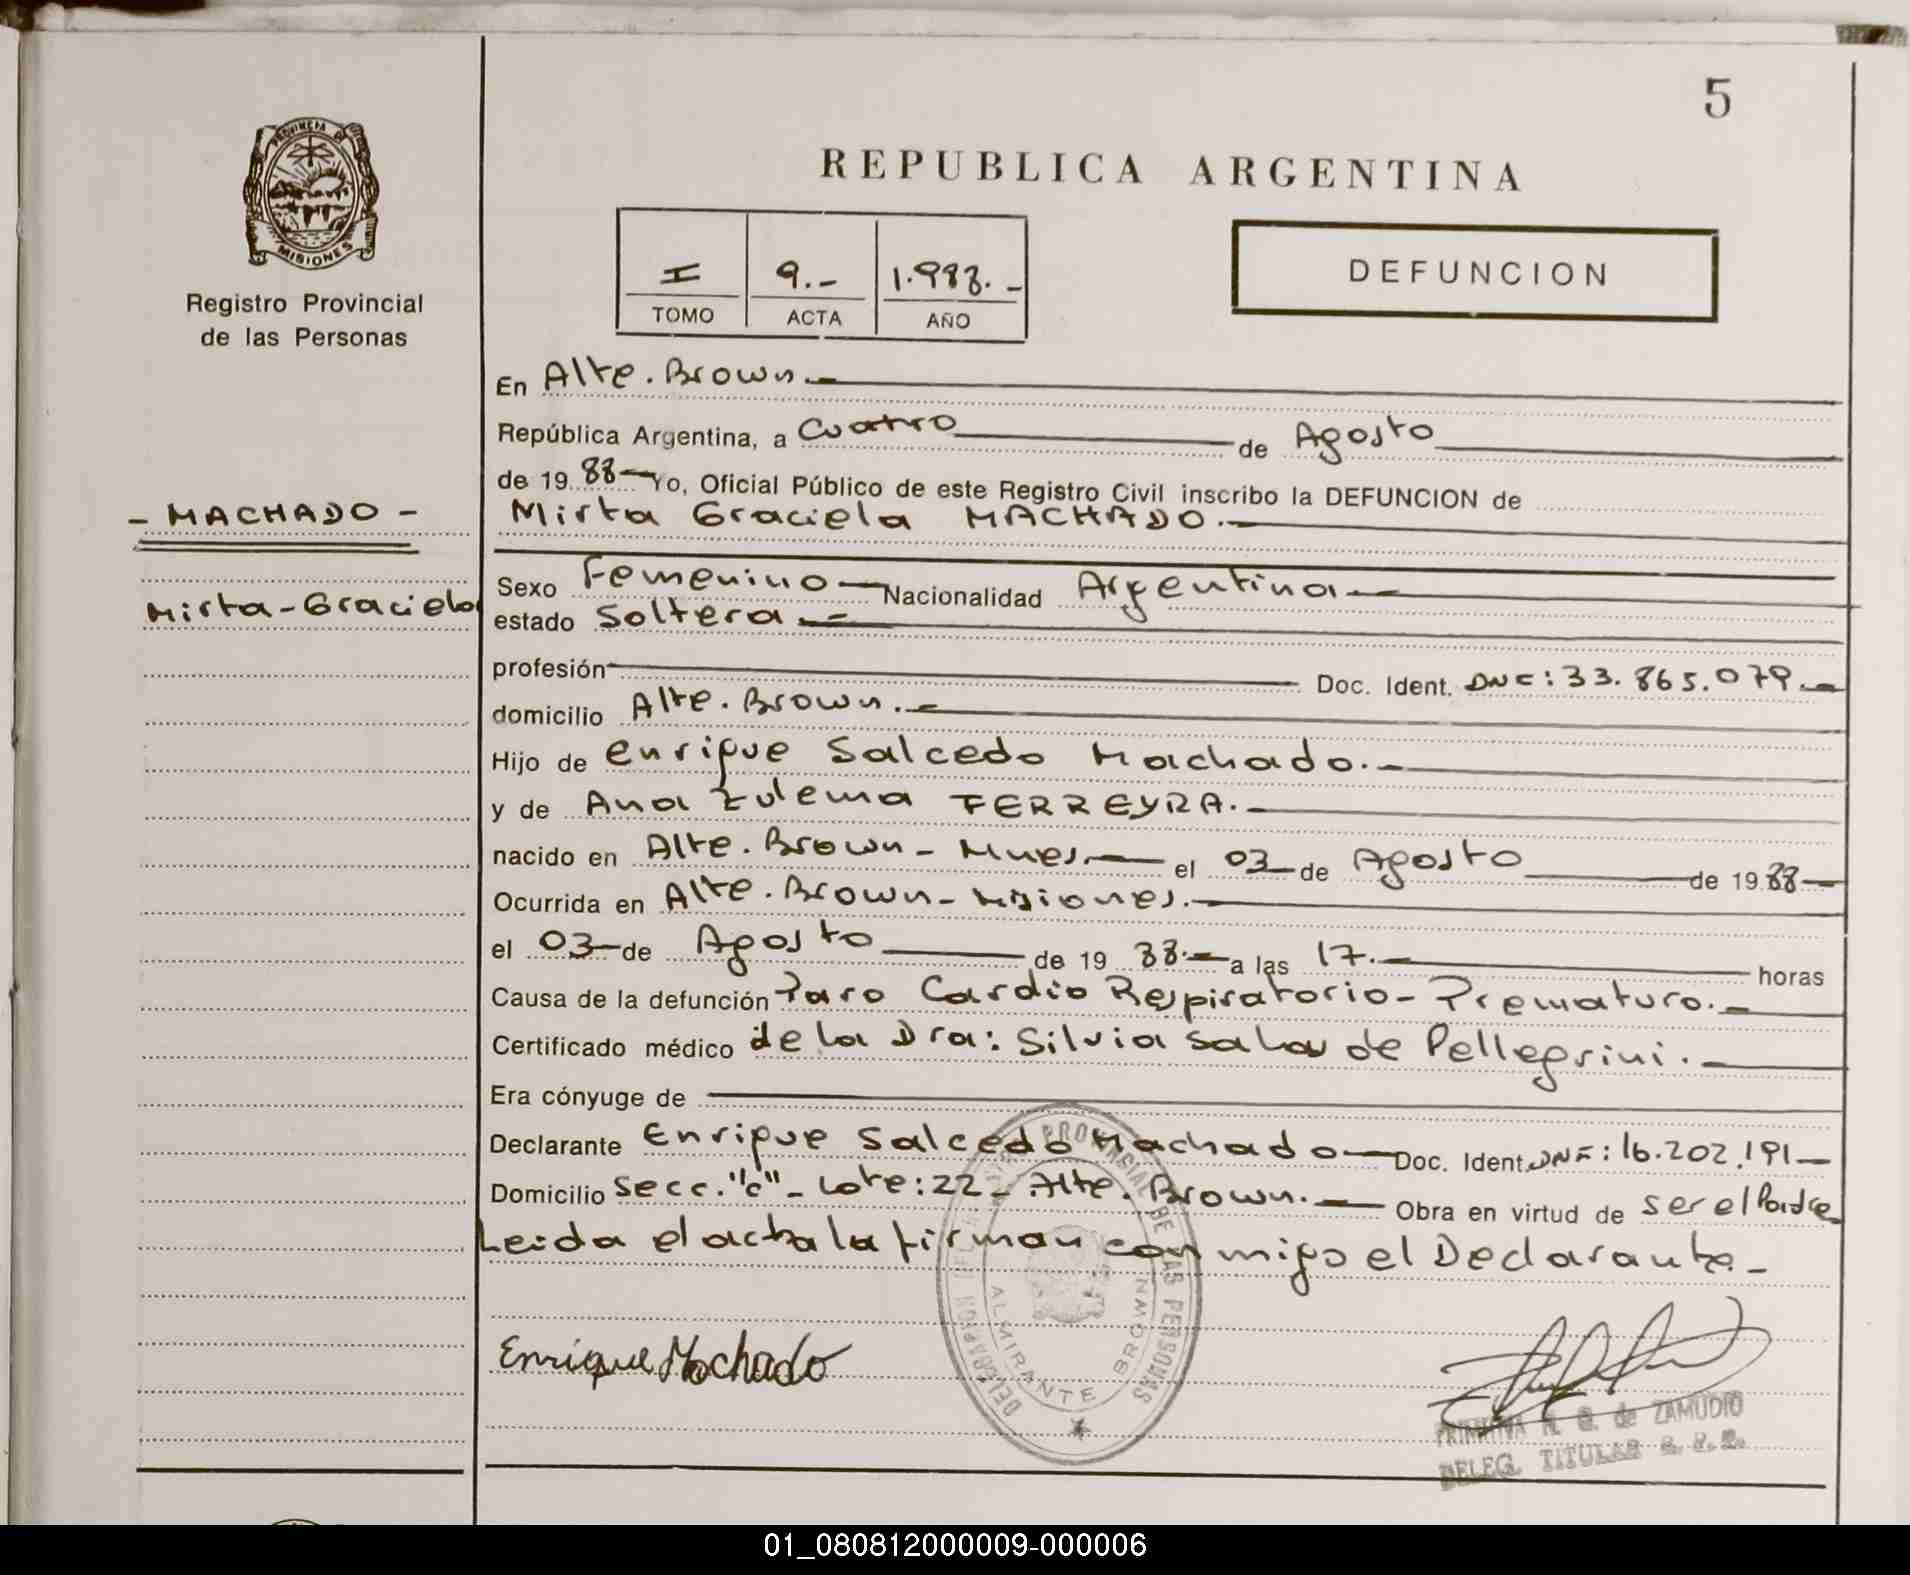 5
REPUBLICA ARGENTINA
PROVINCIA DE
MISIONES
Registro Provincial
de las Personas
I 9.- 1.988.-
TOMO ACTA AÑO
DEFUNCION
- MACHADO -
Mirta-Graciela
En Alte. Brown.-
República Argentina, a Cuatro de Agosto
de 1988 Yo, Oficial Público de este Registro Civil inscribo la DEFUNCION de
Mirta Graciela MACHADO.-
Sexo Femenino Nacionalidad Argentina.-
estado Soltera.-
profesión Doc. Ident. DNE: 33.865.079.-
domicilio Alte. Brown.-
Hijo de Enrique Salcedo Machado.-
y de Ana Zulema FERREYRA.-
nacido en Alte. Brown- Mnes.- el 03 de Agosto de 1988
Ocurrida en Alte. Brown- Misiones.-
el 03 de Agosto de 19 88.- a las 17.- horas
Causa de la defunción Paro Cardio Respiratorio- Prematuro.-
Certificado médico de la Dra: Silvia de Pellegrini.-
Era cónyuge de
Declarante Enrique Salcedo Machado Doc. Ident. : 16.202.191-
Domicilio Secc. "c"- Lote: 22- Alte. Brown.- Obra en virtud de ser el Padre
Leida el acta la firman con migo el Declarante.-
Enrique Machado
DELEGACION DEL REGISTRO PROVINCIAL DE LAS PERSONAS
ALMIRANTE BROWN
PRIMITIVA de ZAMUDIO
DELEG. TITULAR
01_080812000009-000006